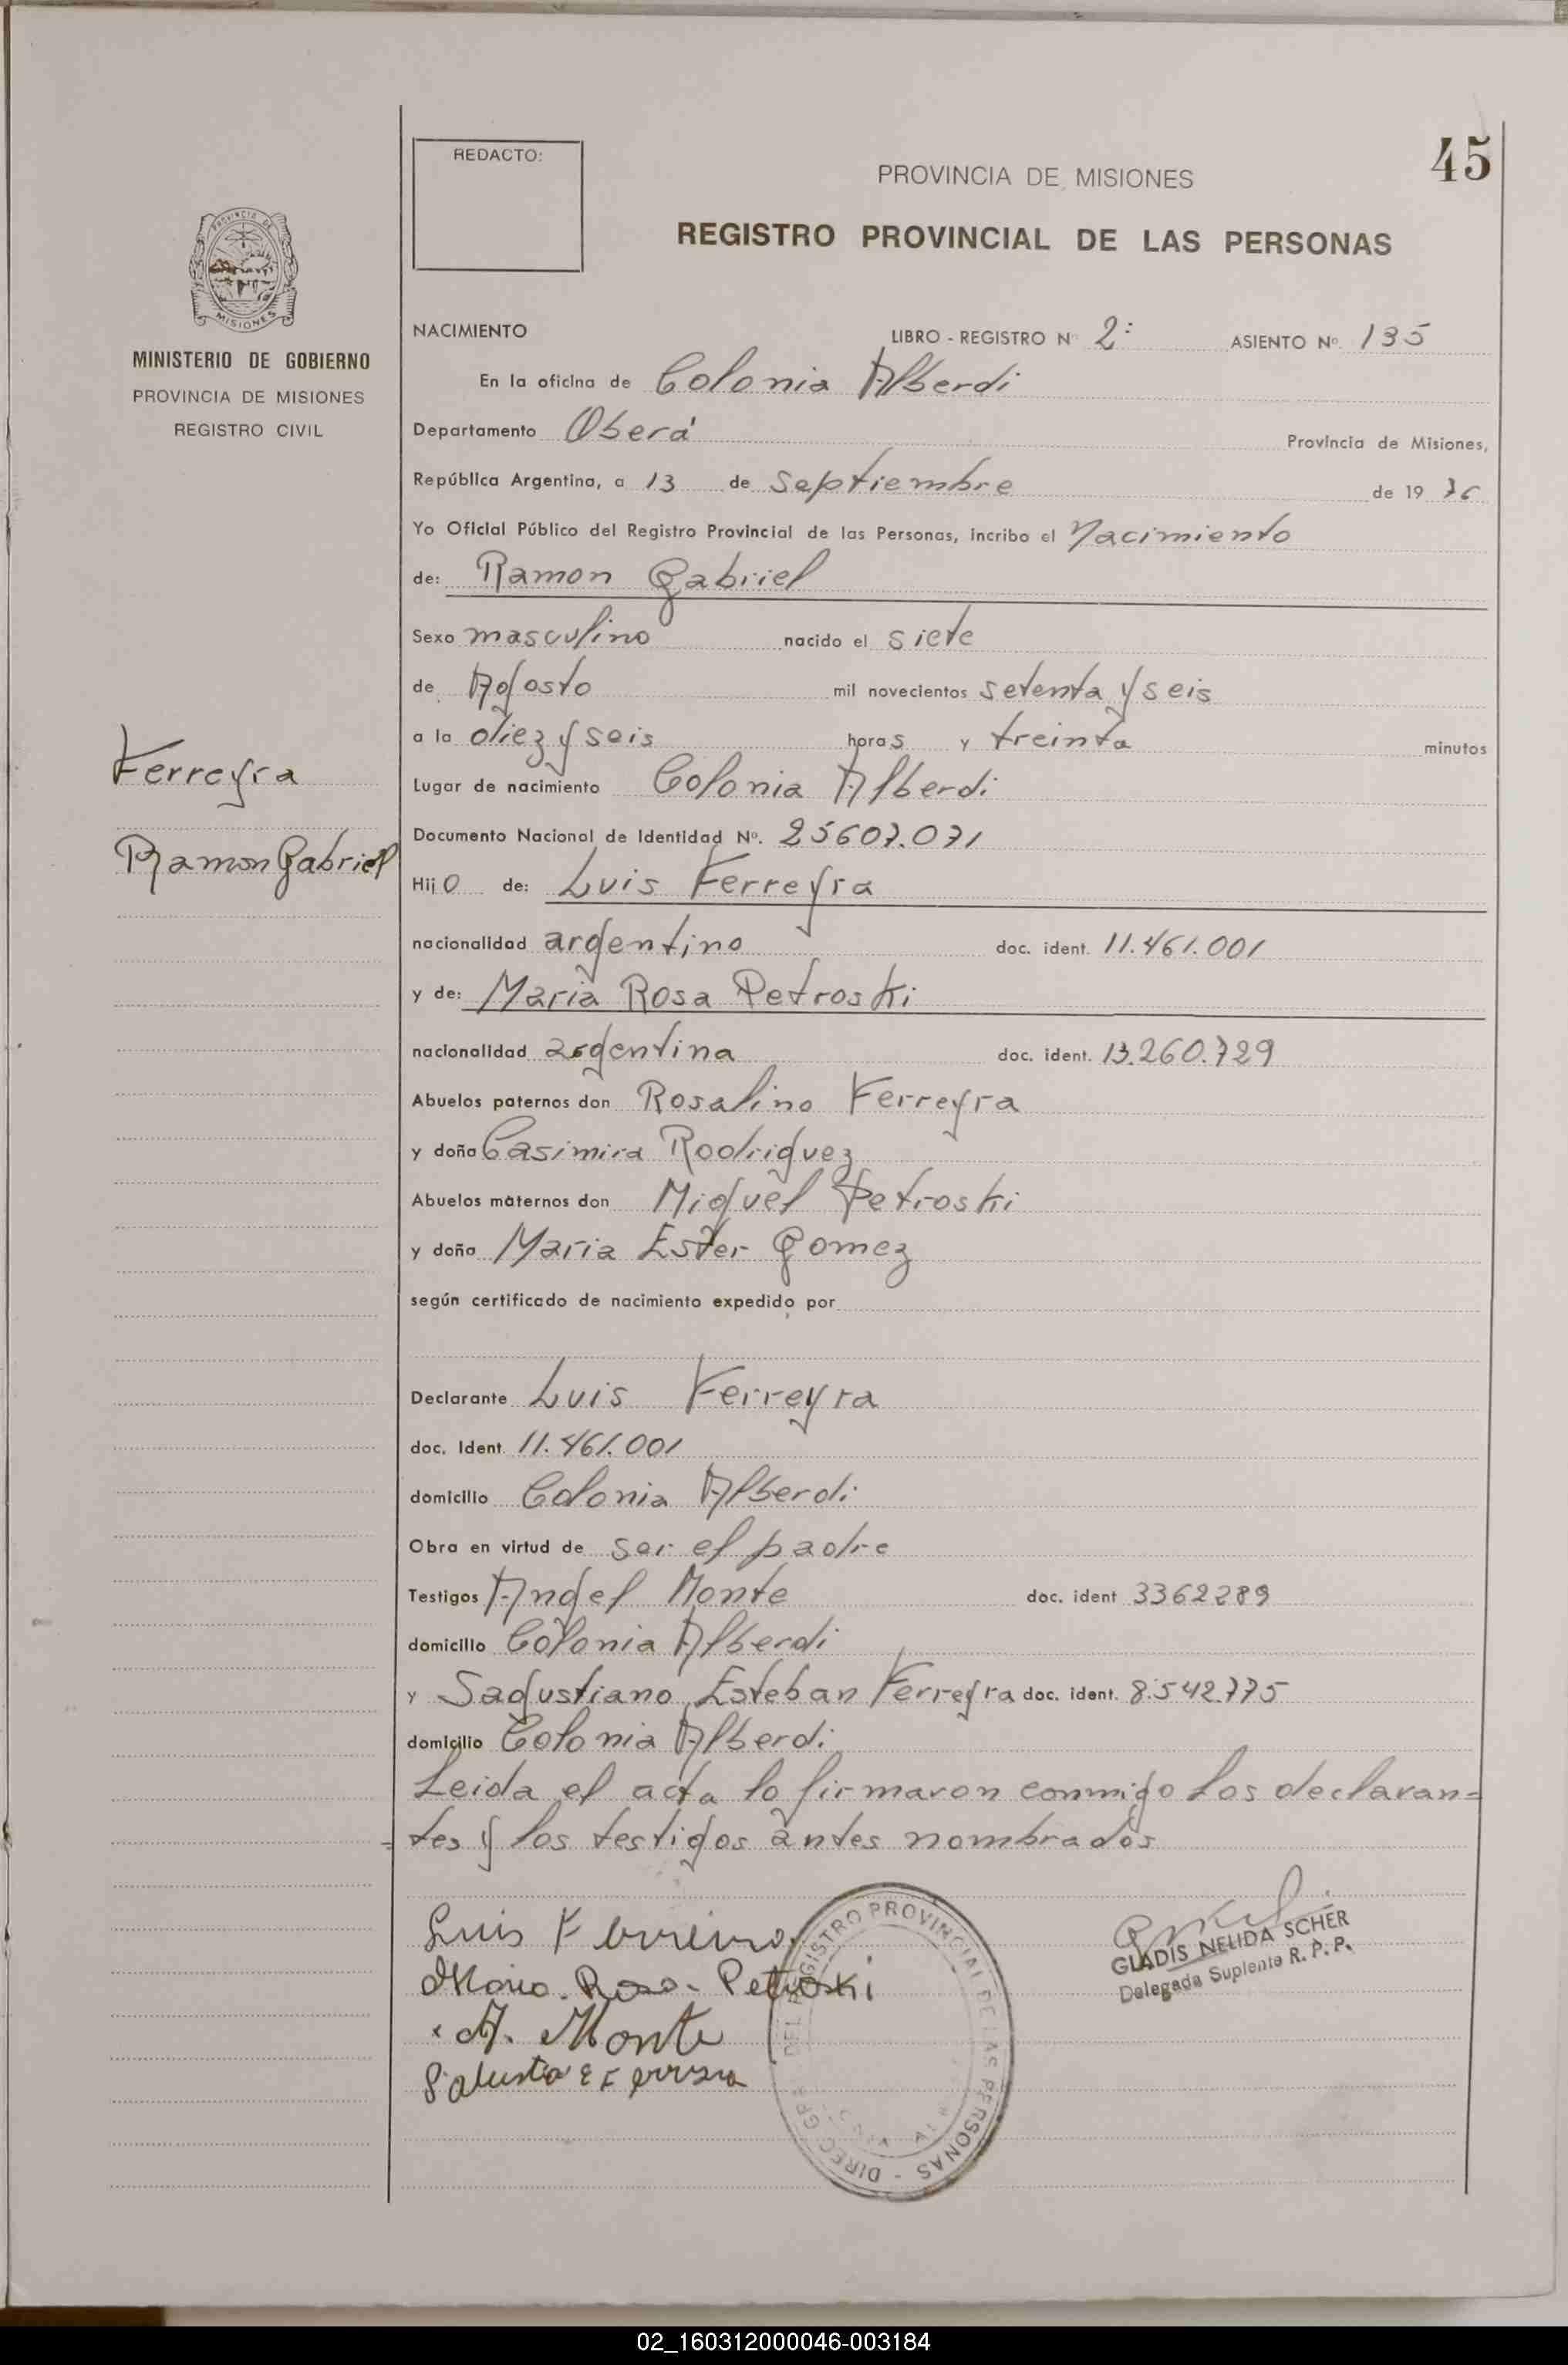 45
REDACTO:
PROVINCIA DE MISIONES
REGISTRO PROVINCIAL DE LAS PERSONAS
PROVINCIA DE
MISIONES
MINISTERIO DE GOBIERNO
PROVINCIA DE MISIONES
REGISTRO CIVIL
NACIMIENTO LIBRO - REGISTRO Nº 2: ASIENTO Nº 135
En la oficina de Colonia Alberdi
Departamento Oberá Provincia de Misiones,
República Argentina, a 13 de Septiembre de 19 76
Yo Oficial Público del Registro Provincial de las Personas, incribo el Nacimiento
de: Ramon Gabriel
Sexo masculino nacido el siete
de Agosto mil novecientos setenta y seis
a la diez y seis horas y treinta minutos
Ferreyra
Ramon Gabriel
Lugar de nacimiento Colonia Alberdi
Documento Nacional de Identidad Nº. 25607.071
Hijo de: Luis Ferreyra
nacionalidad argentino doc. ident. 11.461.001
y de: Maria Rosa Petroski
nacionalidad argentina doc. ident. 13.260.729
Abuelos paternos don Rosalino Ferreyra
y doña Casimira Rodriguez
Abuelos maternos don Miguel Petroski
y doña Maria Ester Gomez
según certificado de nacimiento expedido por
Declarante Luis Ferreyra
doc. Ident. 11.461.001
domicilio Colonia Alberdi
Obra en virtud de ser el padre
Testigos Angel Monte doc. ident 3362289
domicilio Colonia Alberdi
y Sagustiano Esteban Ferreyra doc. ident. 8.542.775
domicilio Colonia Alberdi
Leida el acta lo firmaron conmigo los declaran=
=tes y los testigos antes nombrados
Luis Ferreira
Maria Rosa Petroski
A. Monte
GLADIS NELIDA SCHER
Delegada Suplente R. P. P.
DEL REGISTRO PROVINCIAL DE LAS PERSONAS - DIREC. GRAL
02_160312000046-003184